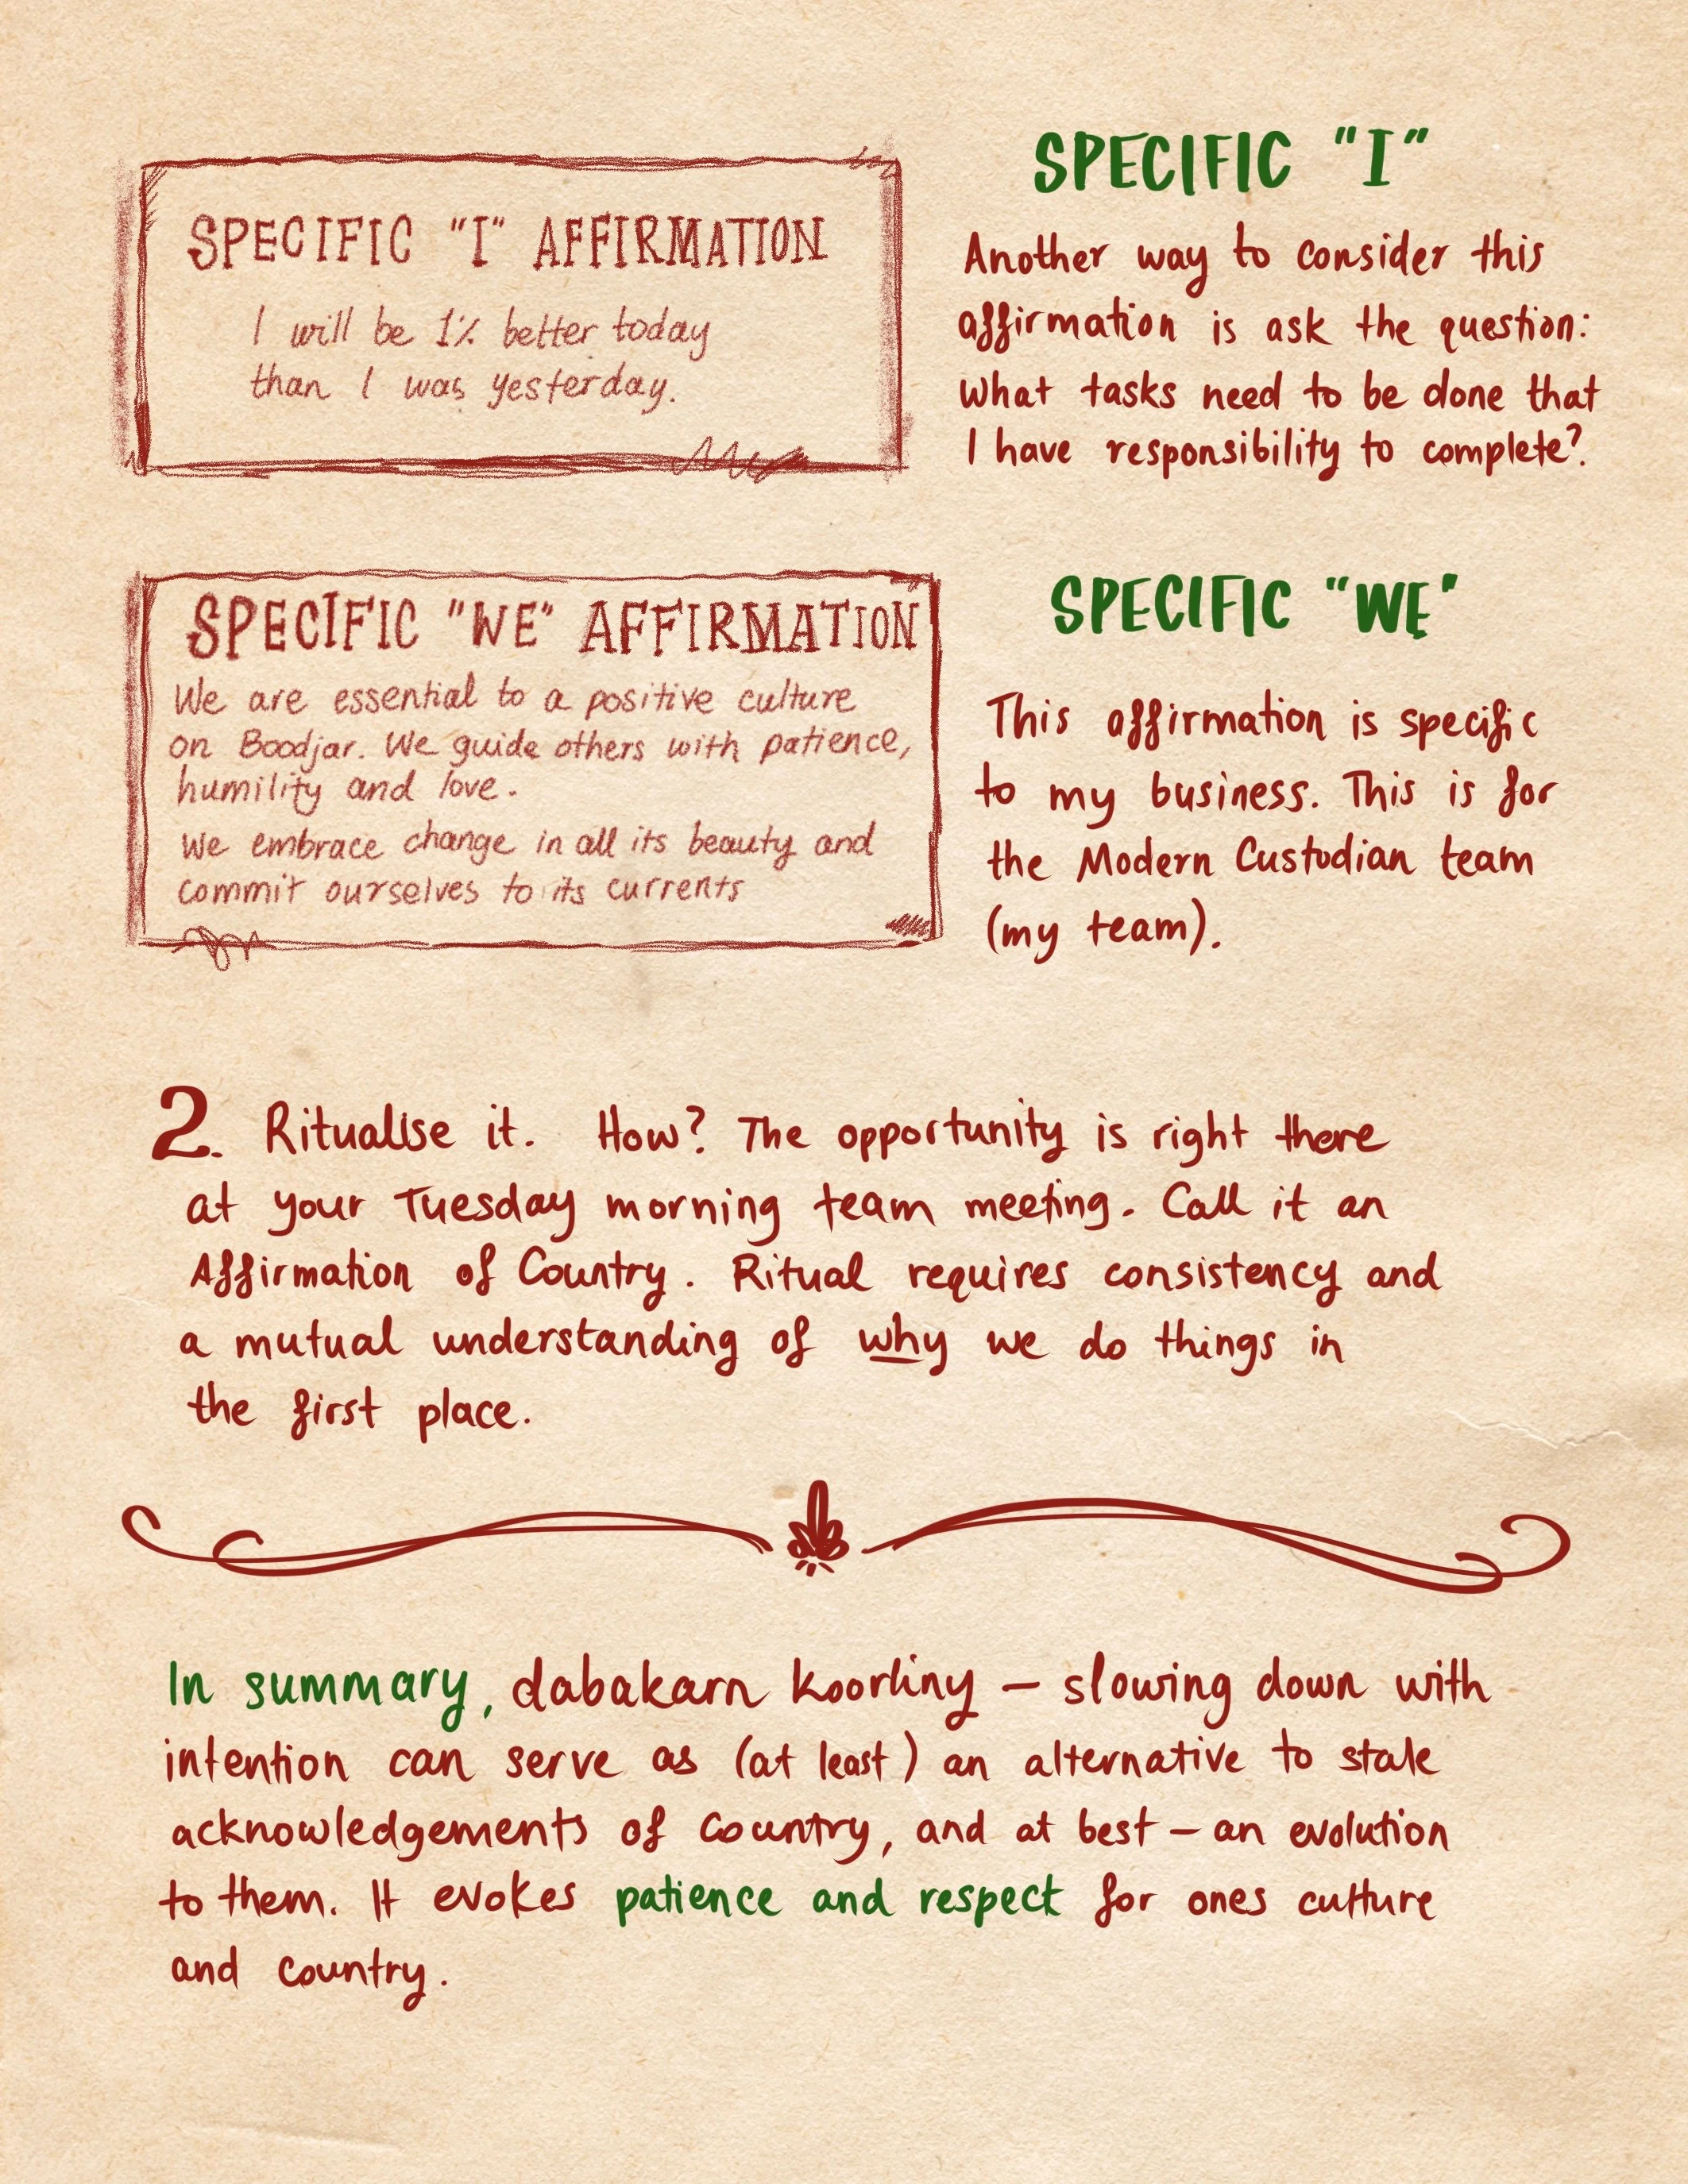 SPECIFIC "I" AFFIRMATION
I will be 1% better today
than I was yesterday.
SPECIFIC "I"
Another way to consider this
affirmation is ask the question:
what tasks need to be done that
I have responsibility to complete?
SPECIFIC "WE" AFFIRMATION
We are essential to a positive culture
on Boodjar. We guide others with patience,
humility and love.
We embrace change in all its beauty and
commit ourselves to its currents
SPECIFIC "WE"
This affirmation is specific
to my business. This is for
the Modern Custodian team
(my team).
2. Ritualise it. How? The opportunity is right there
at your Tuesday morning team meeting. Call it an
Affirmation of Country. Ritual requires consistency and
a mutual understanding of why we do things in
the first place.
In summary, dabakarn koorliny – slowing down with
intention can serve as (at least) an alternative to stale
acknowledgements of Country, and at best – an evolution
to them. It evokes patience and respect for ones culture
and country.